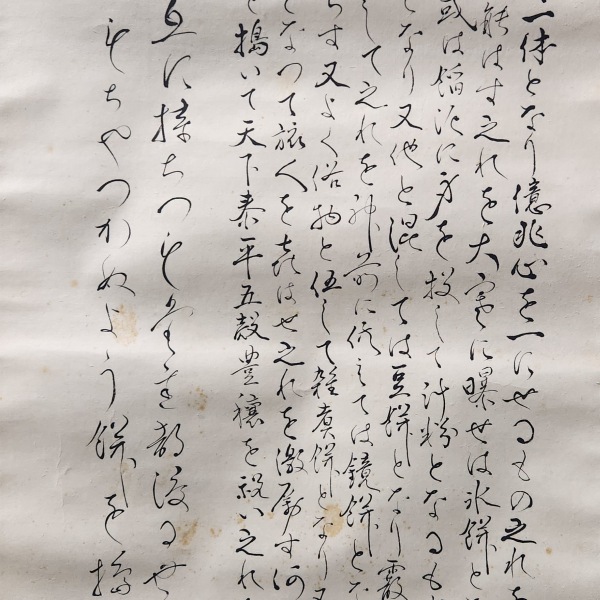 一体となり億兆心を一にせるもの之れを
能はす之れを大寒に曝せは氷餅と
或は餡泥に身を投して汁粉となるも
となり又他と混しては豆餅となり霰
して之れを神前に供えては鏡餅とな
らす又よく俗物と伍して雑煮餅となり又
となつて旅人を喜はせ之れを激励す河
を搗いて天下泰平五穀豊穣を祝い之れ
互に持ちつもたれ
もちやつかぬよう餅を搗